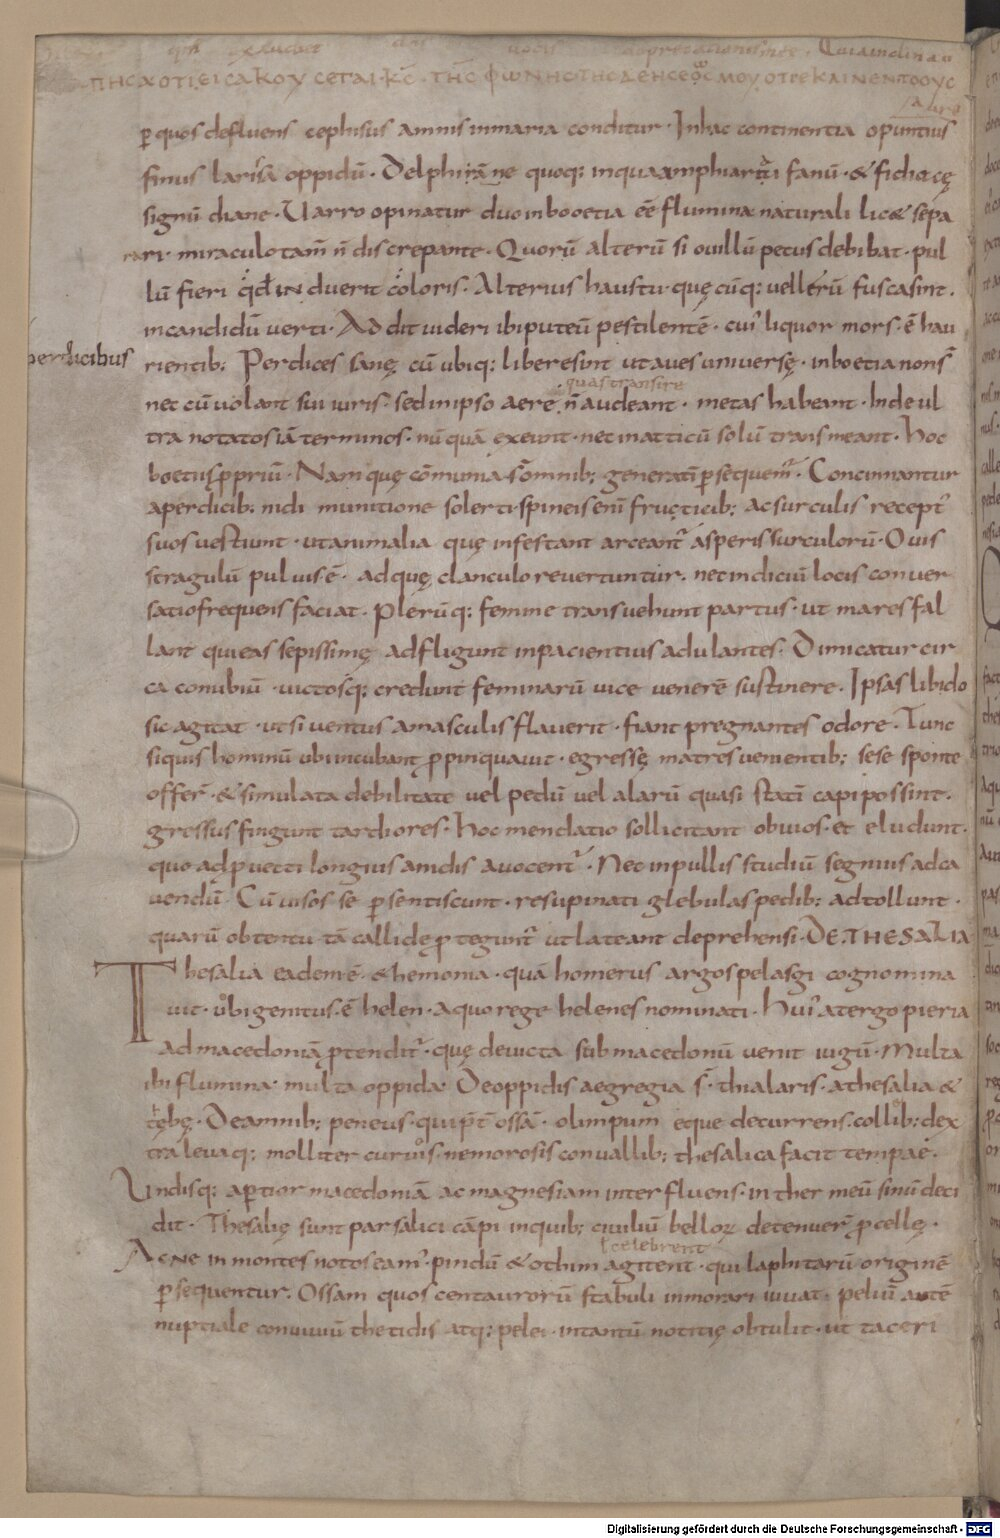 qm̄ exaudiet dn̄s uocis deprecationis meę. Quia inclinau
ΠΗCΑ ΟΤΙ ΕΙCΑΚΟΥCΕΤΑΙ Κ̄C · ΤΗC ΦΩΝΗC ΤΗC ΔΕΗCΕΩC ΜΟΥ ΟΤΙ ΕΚΛΙΝΕΝ ΤΟ ΟΥC
aurē
p quos defluens cephisus amnis inmaria conditur · Inhac continentia opuntius
sinus larisa oppidū · Delphirāne quoq; inqua amphiarai fanū · & fidiacę
signū diane · Uarro opinatur duo inbooetia eē flumina naturali lic& sepa
rari · miraculo tam̄ n̄ discrepante · Quorū alterū si ouillū pecus debibat · pul
lū fieri qd induerit coloris · Alterius haustu · quę cūq; uellerū fusca sint ·
incandidū uerti · Addit uideri ibi puteū pestilentē · cui' liquor mors · ē hau
perdicibus
rientib; Perdices sanę cū ubiq; libere sint ut aues uniuersę · inboetia non s̄
quas transire
nec cū uolant sui iuris · sed inipso aere · n̄ audeant · metas habeant · Inde ul
tra notatos iā terminos · nū quā exeunt · nec inatticū solū transmeant · hoc
boetiis ppriū · Nam quę cōmunia s̄ omnib; generati psequemr̄ · Concinnantur
aperdicib; nidi munitione solerti · spineis enī fructicib; ac surculis recept'
suos uestiunt · ut animalia quę infestant arceant' asperis surculorū · Ouis
stragulū puluis ē · ad quę clanculo reuertuntur · nec indiciū locis conuer
satio frequens faciat · Plerūq; femine transuehunt partus · ut mares fal
lant qui eas sepissimę adfligunt inpacientius adulantes · Dimicatur cir
ca conubiū · uictosq; credunt feminarū uice uenerē sustinere · Ipsas libido
sic agitat · ut si uentus amasculis flauerit · fiant pregnantes odore · Tunc
siquis hominū ubi incubant ppinquauit · egressę matres uenientib; sese sponte
offer̄ · & simulata debilitate uel pedū uel alarū quasi statī capi possint ·
gressus fingunt tardiores · hoc mendatio sollicitant obuios · et eludunt ·
quo ad puecti longius anidis auocent' · Nec inpullis studiū segnius adca
uendū Cū uisos se psentiscunt · resupinati glebulas pedib; adtollunt ·
quarū obtentu tā callide ptegunt' ut lateant deprehensi · DE THESALIA
Thesalia eadem ē · & hemonia · quā homerus argos pelasgi cognomina
uit · ubi genitus · ē helen · aquo rege helenes nominati · hui' atergo pieria
ad macedoniā ptendit' · quę deuicta sub macedonū uenit iugū · Multa
ibi flumina multa oppida Deoppidis aegregia s̄ · thialaris · athesalia &
tębę · Deamnib; peneus · qui pt̄ ossā · olimpum eque decurrens · collib; dex
tra leuaq; molliter curuus · nemorosis conuallib; thesalica facit tempae ·
Undisq; aptior macedoniā ac magnesiam interfluens · in thermeū sinū deci
dit · Thesalię sunt parsalici cāpi inquib; ciuiliū belloꝝ detonuer̄ pcellę ·
l celebrent
Ac ne in montes notos eam' · pindū & othim agitent · qui laphitarū originē
psequentur · Ossam quos centaurorū stabuli inmorari iuuat · peliū autē
nuptiale conuiuiū thetidis atq; pelei · intantū notitię obtulit · ut taceri
Digitalisierung gefördert durch die Deutsche Forschungsgemeinschaft - DFG